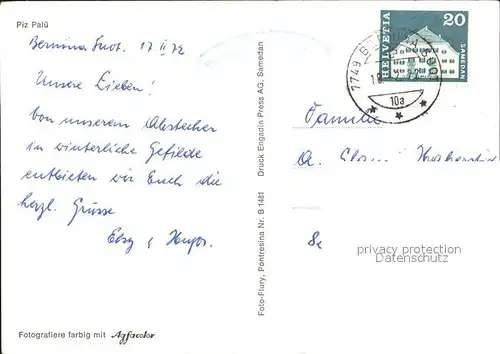 Piz Palü
Bernina Suot. 17.II 72
Unsere Lieben!
Von unserem Abstecher
in winterliche Gefilde
entbieten wir Euch die
herzl. Grüsse
Fotografiere farbig mit Agfacolor
Foto-Flury, Pontresina Nr. B 1481 Druck Engadin Press AG, Samedan
HELVETIA 20
SAMEDAN
7749 BERNINA SUOT
10a
Familie
privacy protection
www.veikkos.com